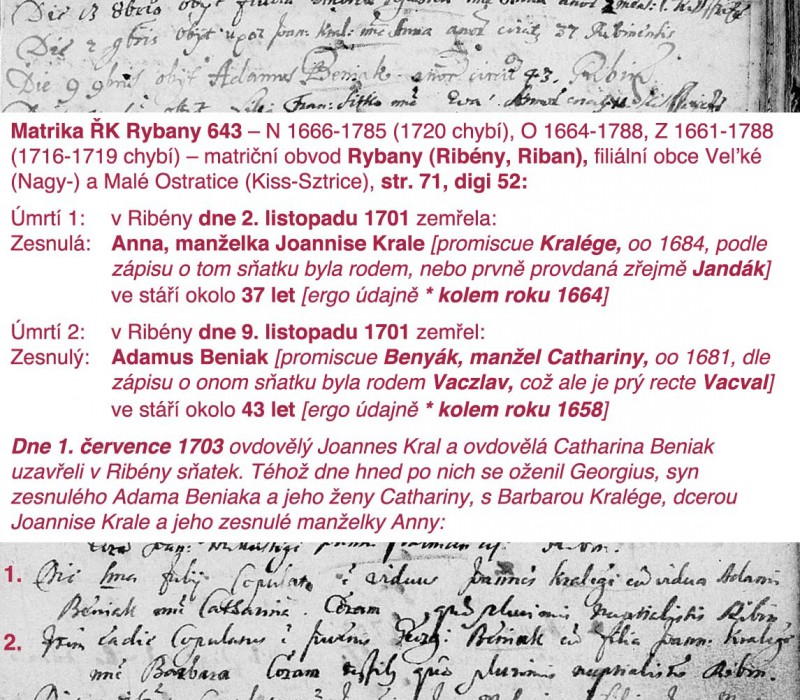 Die 13 8bris obijt filius
Die 2 9bris obijt uxor Joan: Kral: nõe Anna añor circit 37 Ribinensis
Die 9 9bris obijt Adamus Beniak añor circit 43. Ribin:
Eva
Matrika ŘK Rybany 643 – N 1666-1785 (1720 chybí), O 1664-1788, Z 1661-1788
(1716-1719 chybí) – matriční obvod Rybany (Ribény, Riban), filiální obce Veľké
(Nagy-) a Malé Ostratice (Kiss-Sztrice), str. 71, digi 52:
Úmrtí 1: v Ribény dne 2. listopadu 1701 zemřela:
Zesnulá: Anna, manželka Joannise Krale [promiscue Kralége, oo 1684, podle
zápisu o tom sňatku byla rodem, nebo prvně provdaná zřejmě Jandák]
ve stáří okolo 37 let [ergo údajně * kolem roku 1664]
Úmrtí 2: v Ribény dne 9. listopadu 1701 zemřel:
Zesnulý: Adamus Beniak [promiscue Benyák, manžel Cathariny, oo 1681, dle
zápisu o onom sňatku byla rodem Vaczlav, což ale je prý recte Vacval]
ve stáří okolo 43 let [ergo údajně * kolem roku 1658]
Dne 1. července 1703 ovdovělý Joannes Kral a ovdovělá Catharina Beniak
uzavřeli v Ribény sňatek. Téhož dne hned po nich se oženil Georgius, syn
zesnulého Adama Beniaka a jeho ženy Cathariny, s Barbarou Kralége, dcerou
Joannise Krale a jeho zesnulé manželky Anny:
1. Die 1ma Julij Copulatus ẽ viduus Joannes Kralegi cũ vidua Adami
Beniak nõe Catharina. Coram quã plurimis nuptialistis Ribin:
2. Item eadie Copulatus ẽ juvenis Georgi: Beniak cũ filia Joann: Kralege
nõe Barbara Coram quã plurimis nuptialistis Ribin.